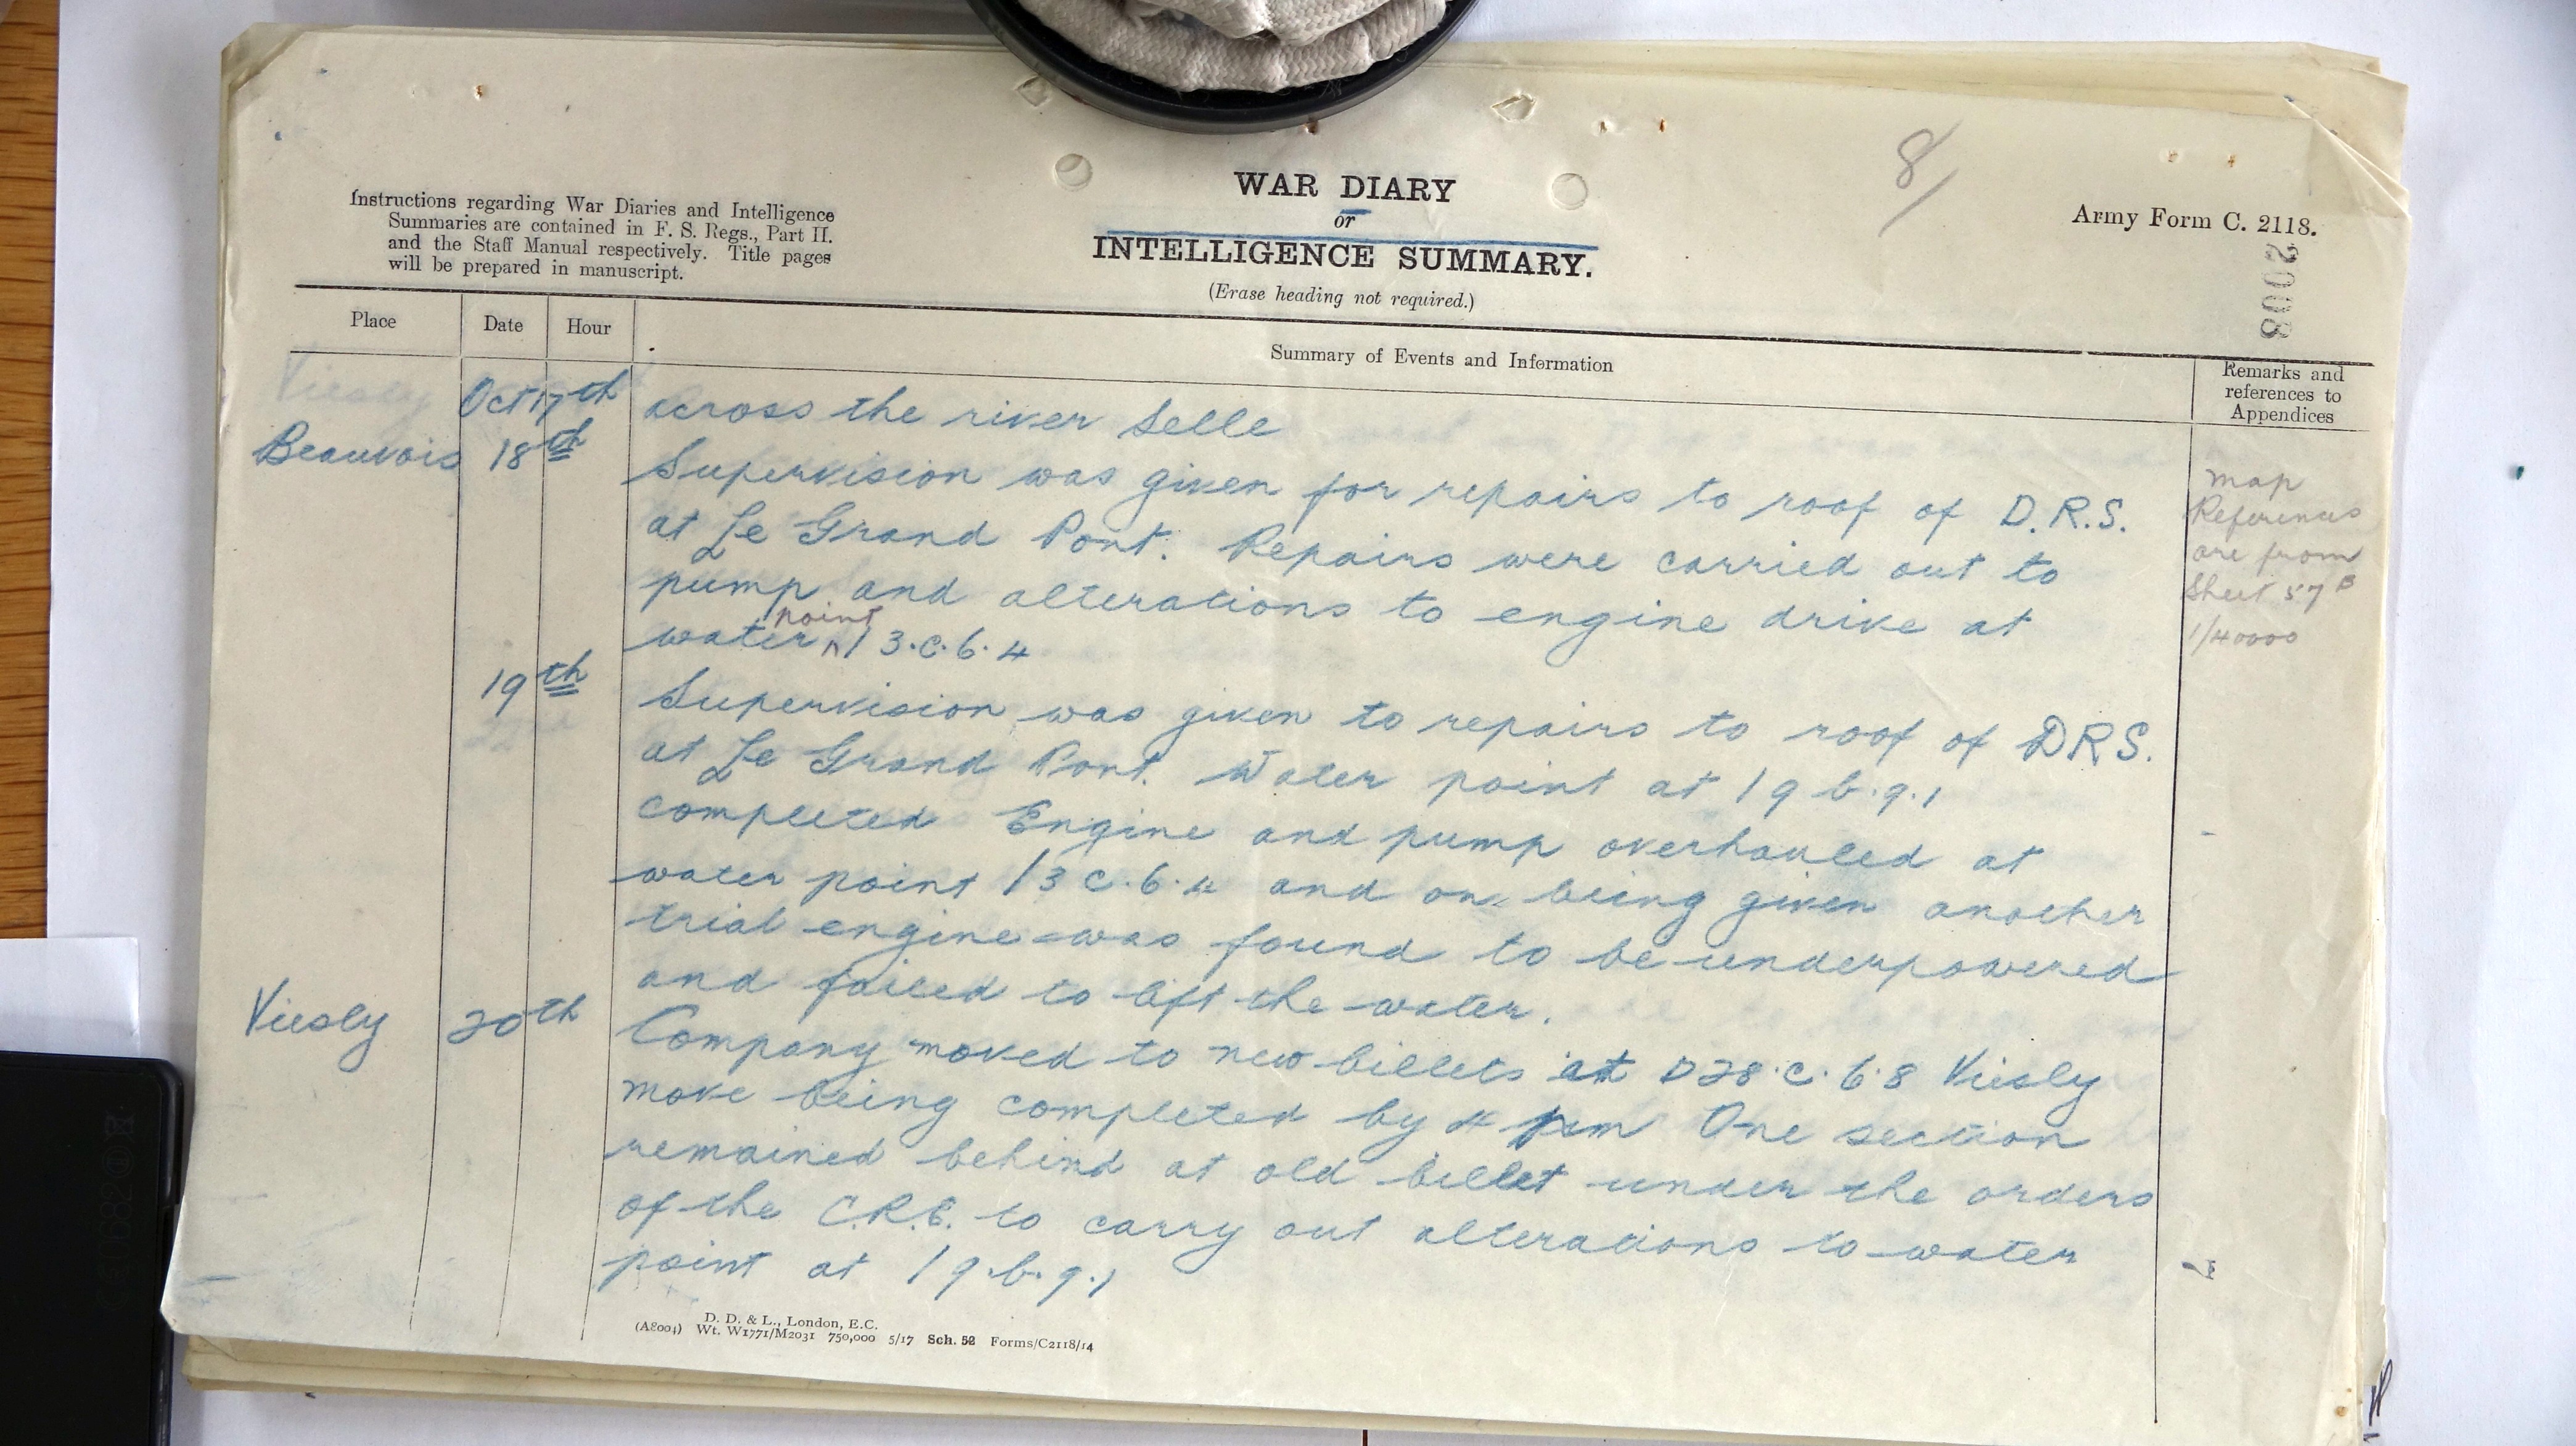 8/
Instructions regarding War Diaries and Intelligence
Summaries are contained in F. S. Regs., Part II.
and the Staff Manual respectively. Title pages
will be prepared in manuscript.
WAR DIARY
or
INTELLIGENCE SUMMARY.
(Erase heading not required.)
Army Form C. 2118.
2008
Place Date Hour Summary of Events and Information Remarks and
references to
Appendices
Viesly Oct 17th across the river Selle
Beauvois 18th Supervision was given for repairs to roof of D.R.S.
at Le Grand Pont. Repairs were carried out to
pump and alterations to engine drive at
water point 13.c.6.4
19th Supervision was given to repairs to roof of DRS.
at Le Grand Pont. Water point at 19 b.9.1
completed Engine and pump overhauled at
water point 13 c.6.4 and on being given another
trial engine was found to be underpowered
and failed to lift the water.
Viesly 20th Company moved to new billets at D28.c.6.8 Viesly
move being completed by 4 pm One section
remained behind at old billet under the orders
of the C.R.E. to carry out alterations to water
point at 19.b.9.1
Map
References
are from
Sheet 57B
1/40000
D. D. & L., London, E.C.
(A8004) Wt. W1771/M2031 750,000 5/17 Sch. 52 Forms/C2118/14